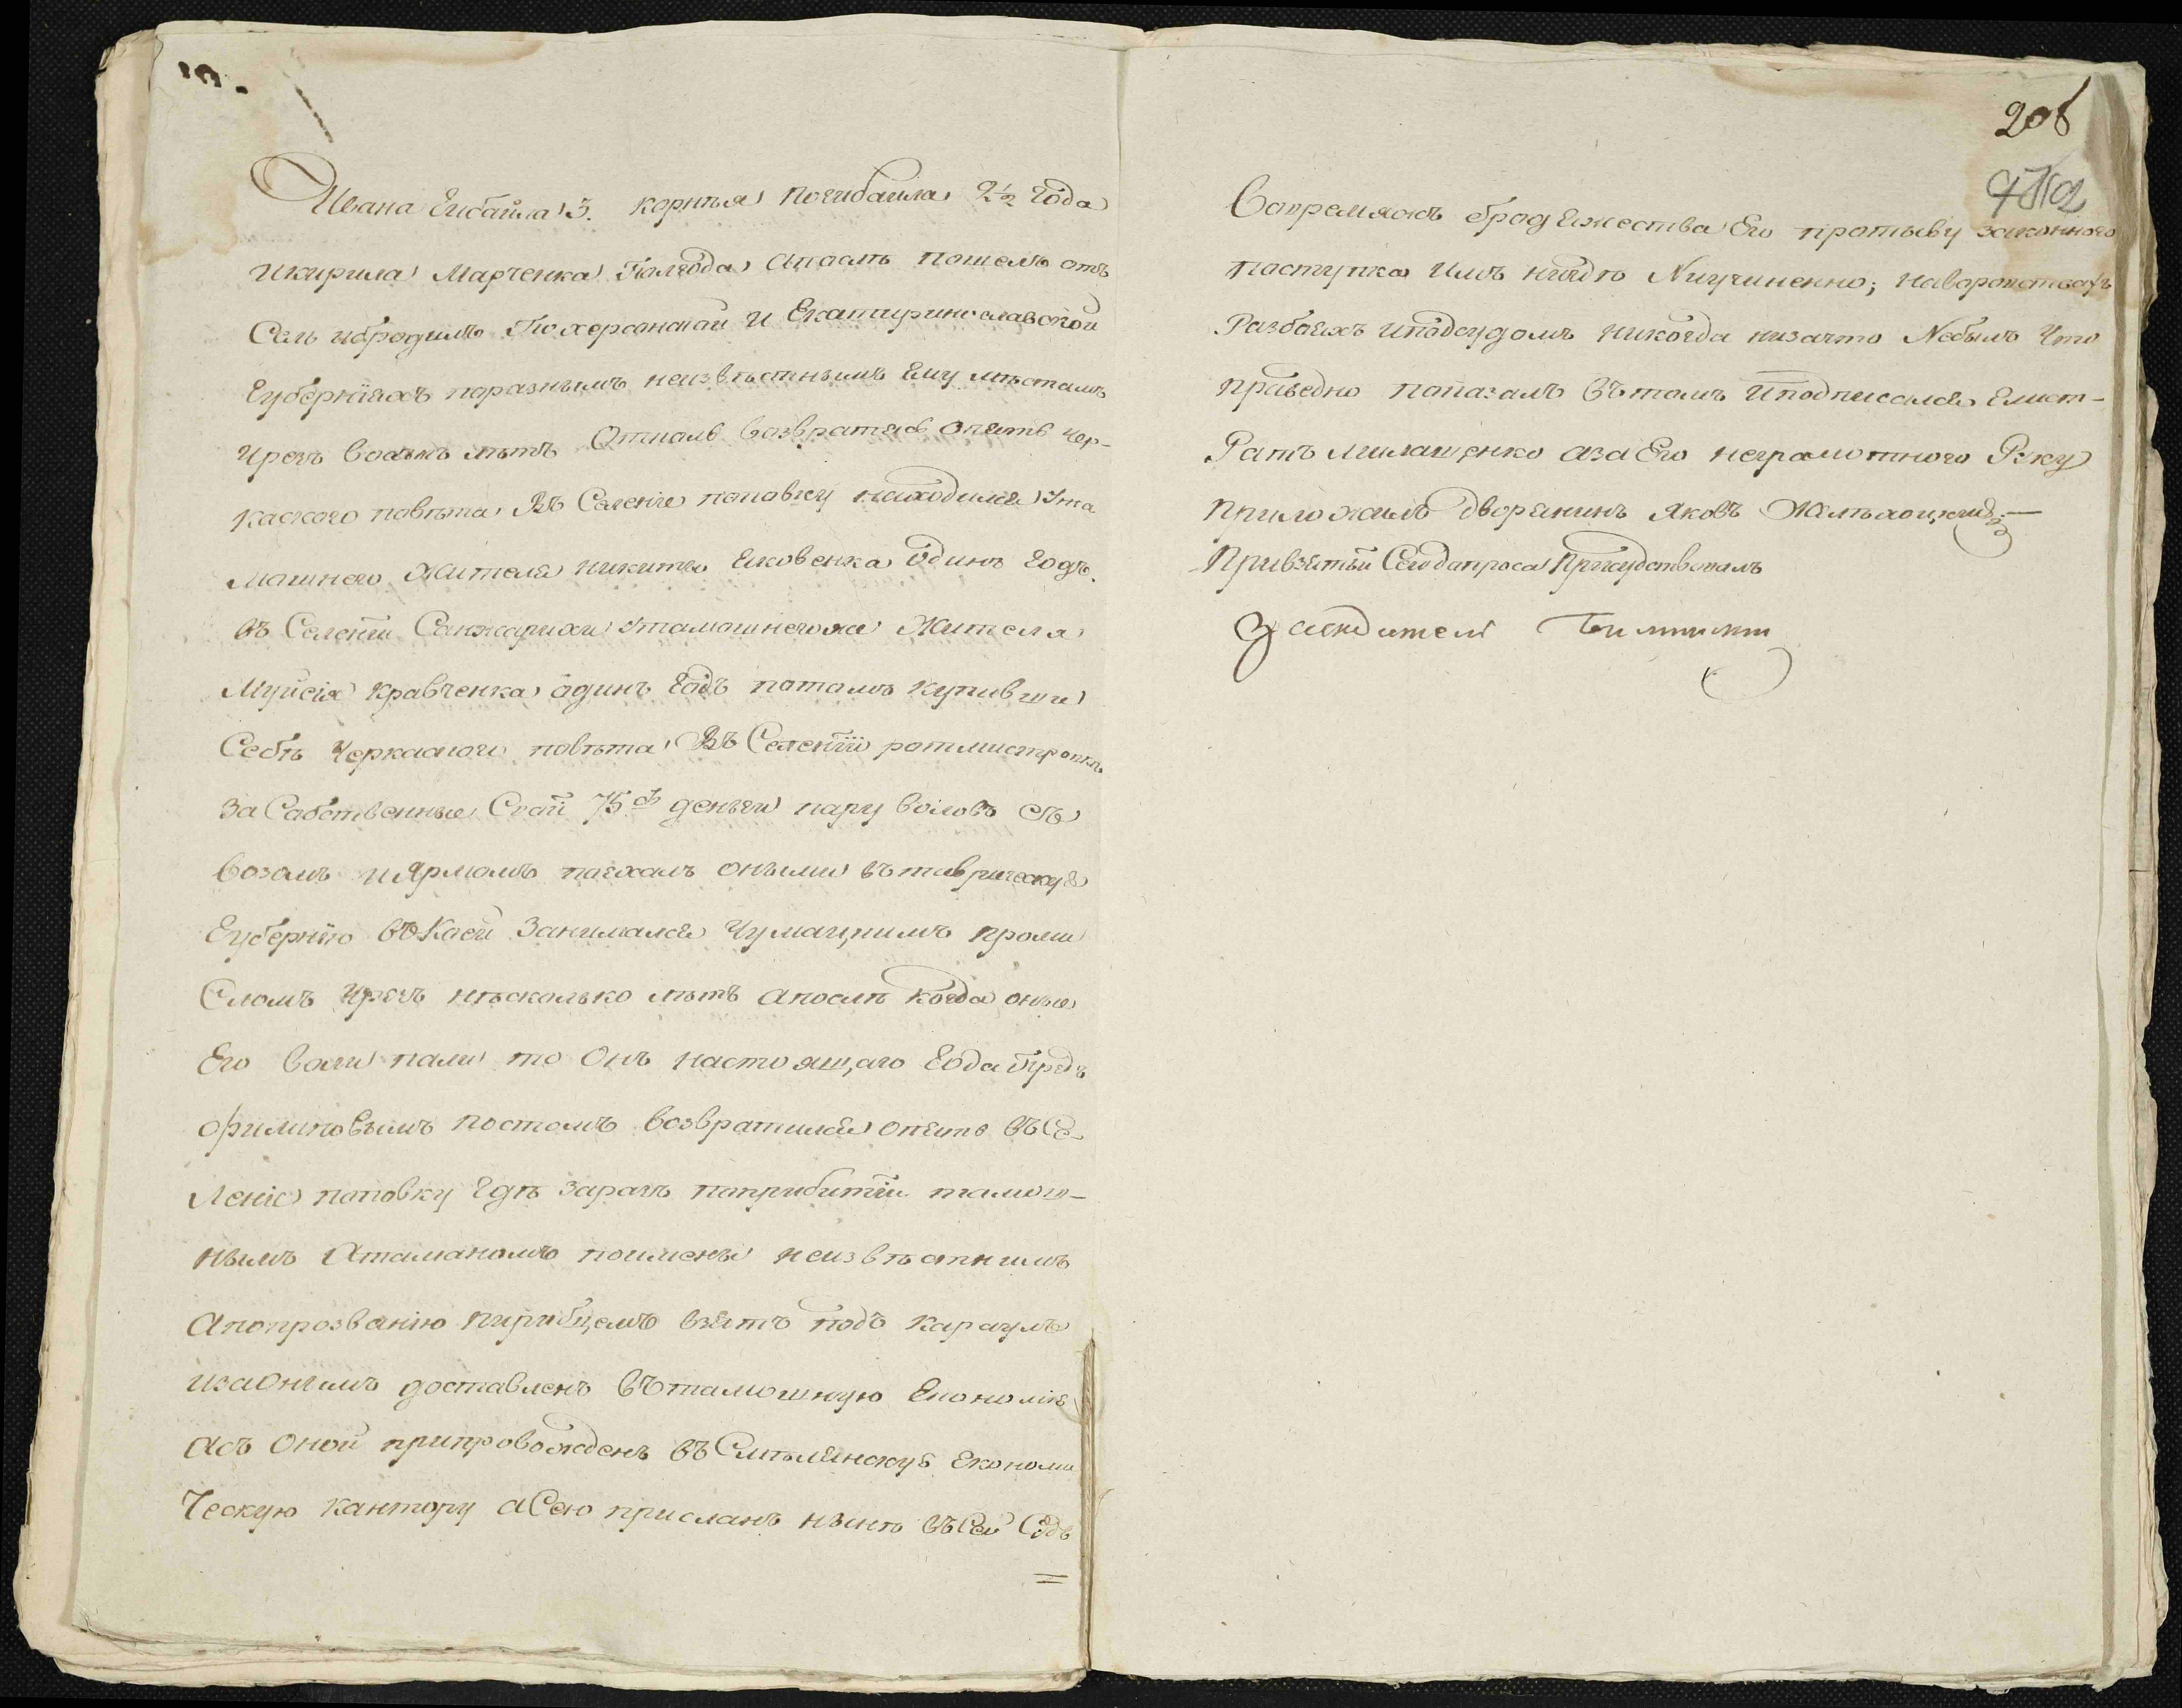 Ивана Гисаила 3. корнѣя погибаила 2½ года
икирила Марченка Полгода апослѣ пошелъ отъ
Сель ибродилъ По херсонской и Екатиринославской
Губерніяхъ поразнымъ неизвѣстнымъ Ему мѣстамъ
Чрезъ восемъ лѣтъ Отколь возвратясь опять чер-
каского повѣта, Въ Селеніе поповку находился Ута
мошнего жителя никиты Яковенка одинъ годъ.
въ Селеніи Санжарихи Утамошнегоже Жителя
Муйсія кравченка одинъ годъ потомъ купивши
Себѣ Черкаского повѣта Въ Селеніи ротмистровки
За Собственные Свои 75 денги пару воловъ Съ
возомъ иярмомъ поехалъ оными въ таврическую
Губернію въ Коей Занимался Чумацкимъ проми
Сломъ Чрезъ нѣсколько лѣтъ апослѣ когда оные
Его воли пали то Онъ настоящаго Года Предъ
филиповымъ постомъ возвратился опять въ Се-
леніе поповку Гдѣ Заразъ поприбитіи тамош-
нымъ Атаманомъ поимены неизвѣстнимъ
Апопрозванію взятъ подъ Караулъ
изаонимъ доставленъ въ тамошную Економію
Асъ Оной припровожденъ въ Смѣлянскую Економи
Ческую Кантору аСею присланъ нынѣ въ Сей Судъ
=
208
Вовремяжъ бродяжества Его протыву законного
поступка Имъ нигдѣ Неучиненно; наворовствахъ
Разбояхъ иподсудомъ никогда низачто Небылъ Что
праведно показалъ Въ томъ Иподписался Елист-
Ратъ Милашенко аза Его неграмотного Руку
Приложилъ дворянинъ Яковъ
Привзятьи Сегодопроса Присудствовалъ